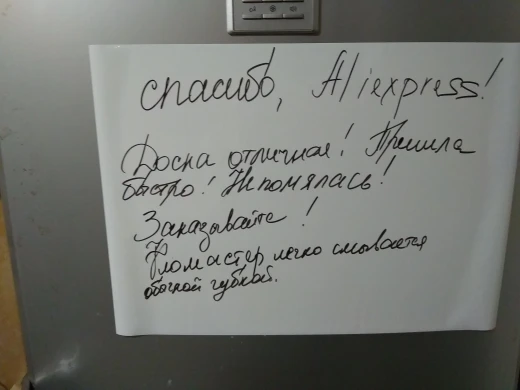 спасибо, Aliexpress!
Доска отличная! Пришла
быстро! Не помялась!
Заказывайте!
Фломастер легко смывается
обычной губкой.